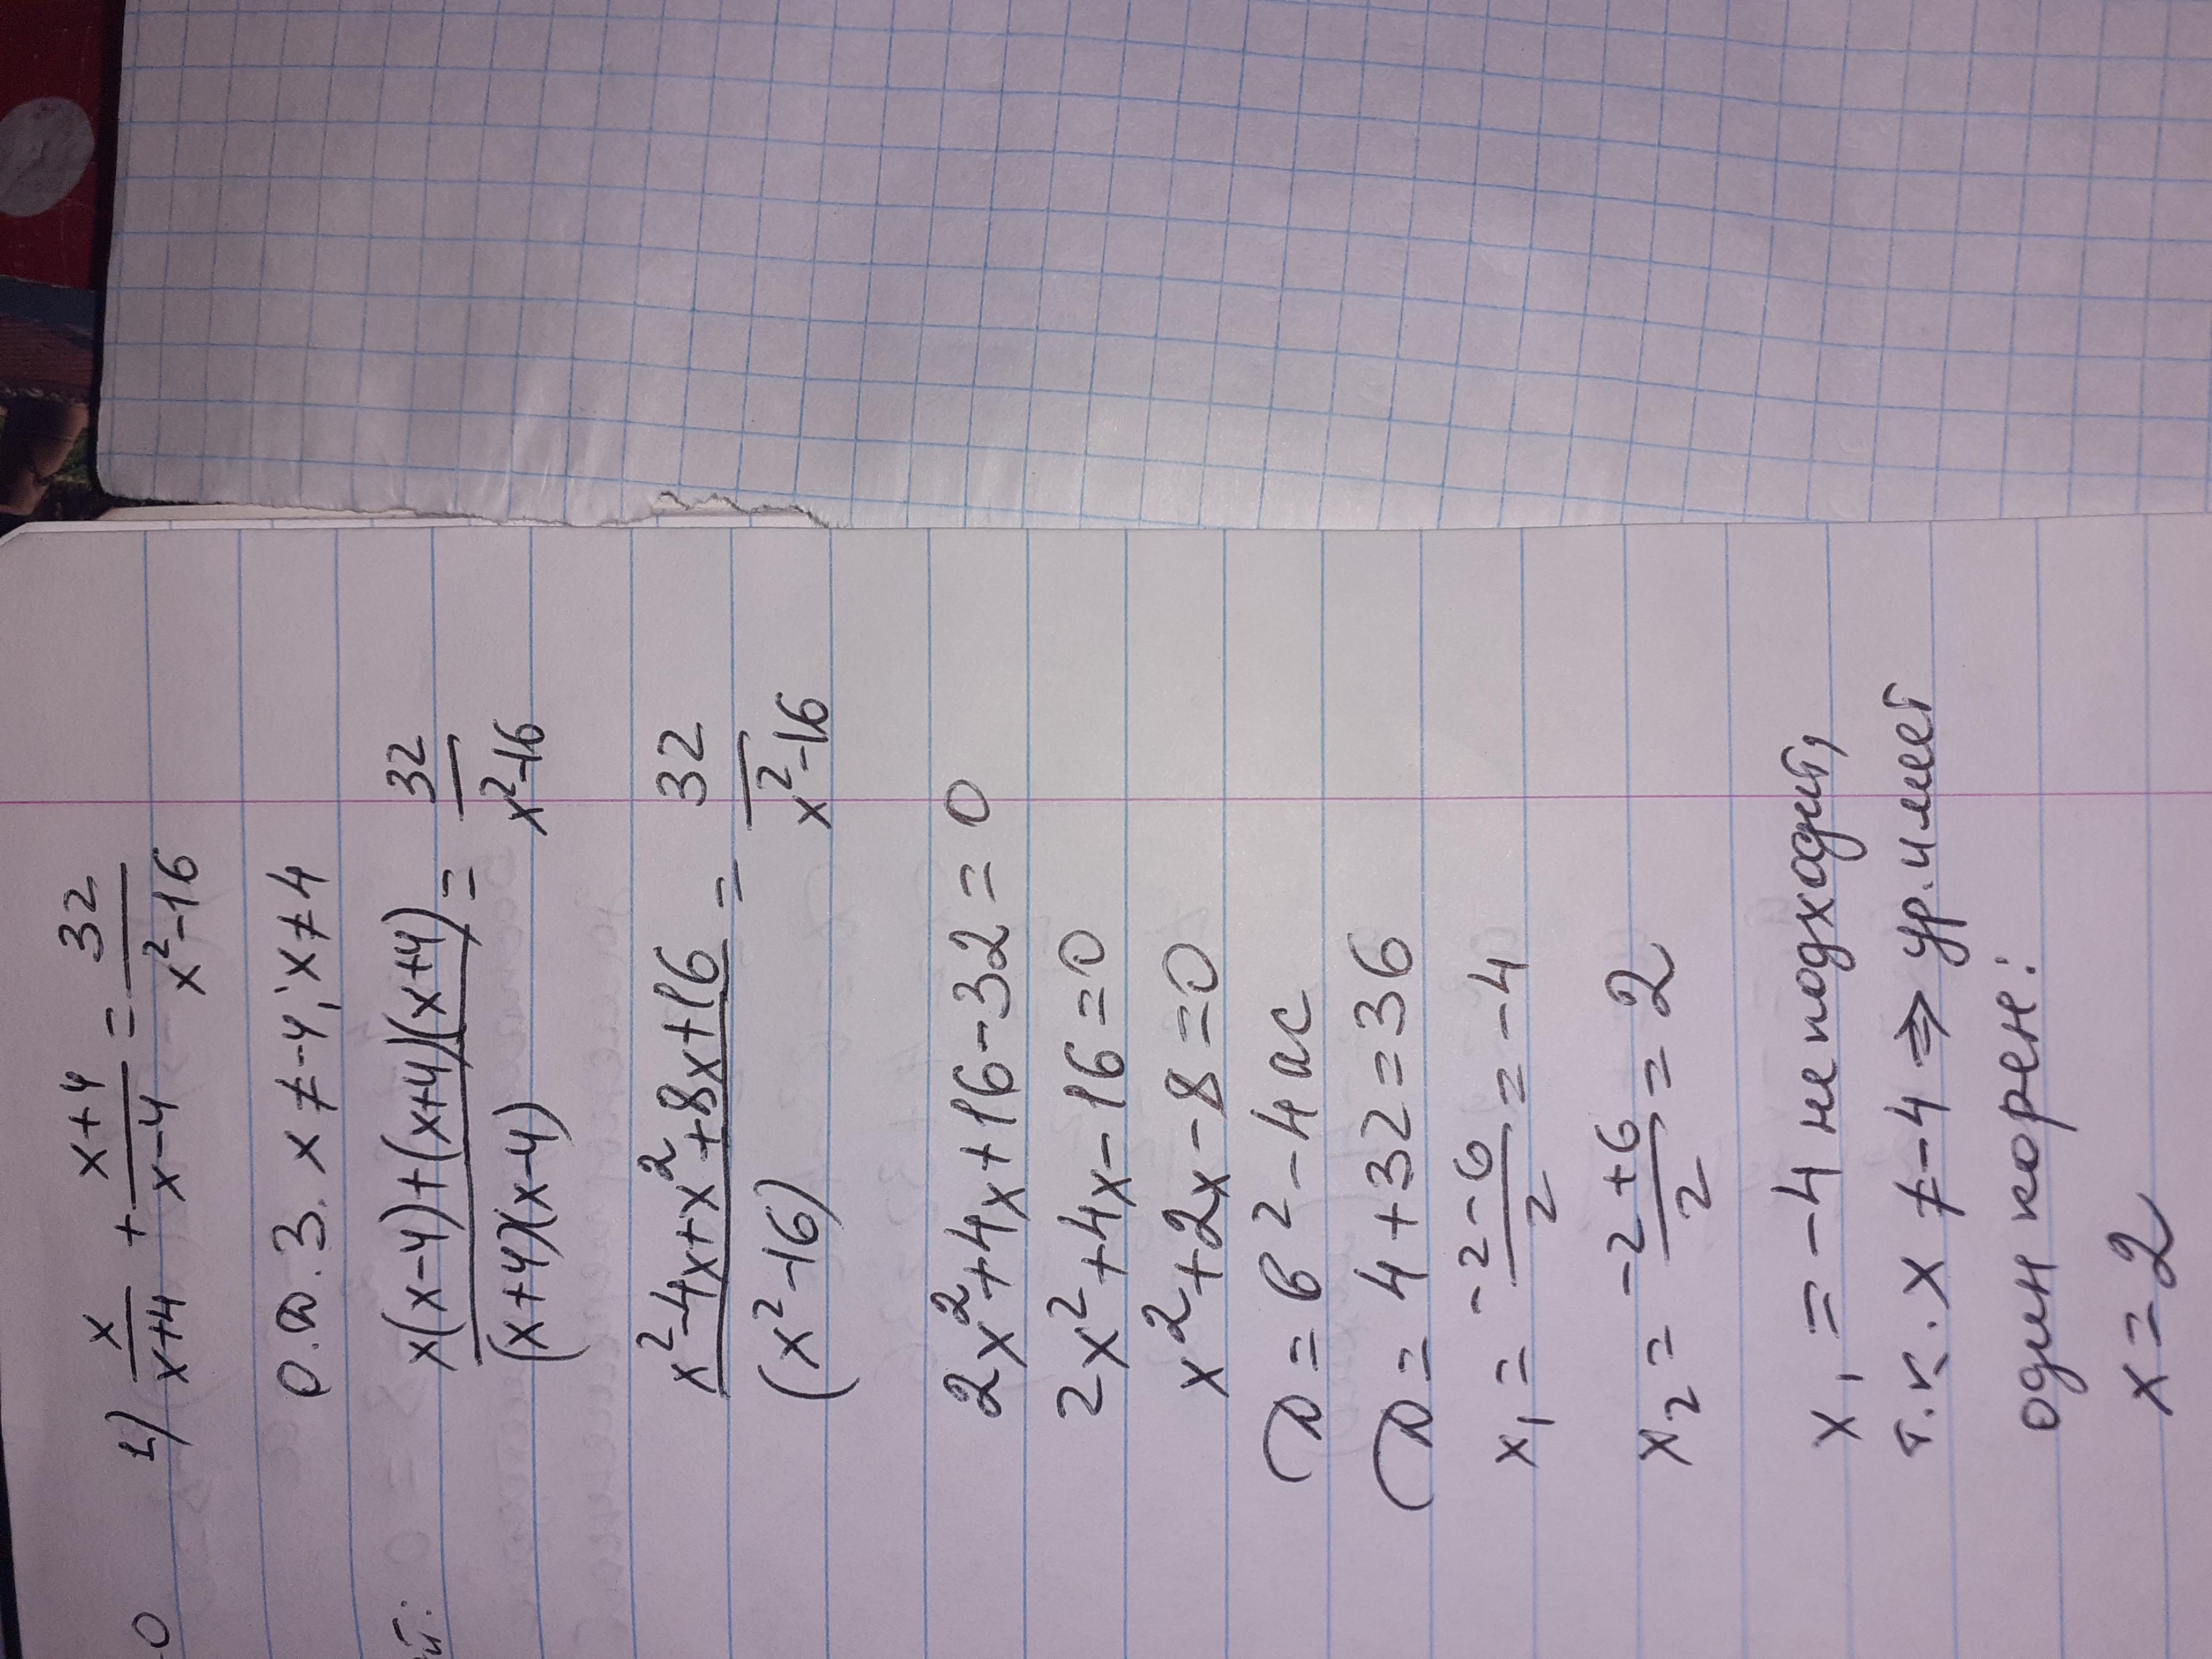 2) x/(x+4) + (x+4)/(x-4) = 32/(x²-16)
О.Д.З. x ≠ -4; x ≠ 4
(x(x-4)+(x+4)(x+4))/((x+4)(x-4)) = 32/(x²-16)
(x²-4x+x²+8x+16)/(x²-16) = 32/(x²-16)
2x²+4x+16-32=0
2x²+4x-16=0
x²+2x-8=0
D = b²-4ac
D = 4+32=36
x₁ = (-2-6)/2 = -4
x₂ = (-2+6)/2 = 2
x₁ = -4 не подходит,
т.к. x ≠ -4 ⇒ ур. имеет
один корен:
x=2